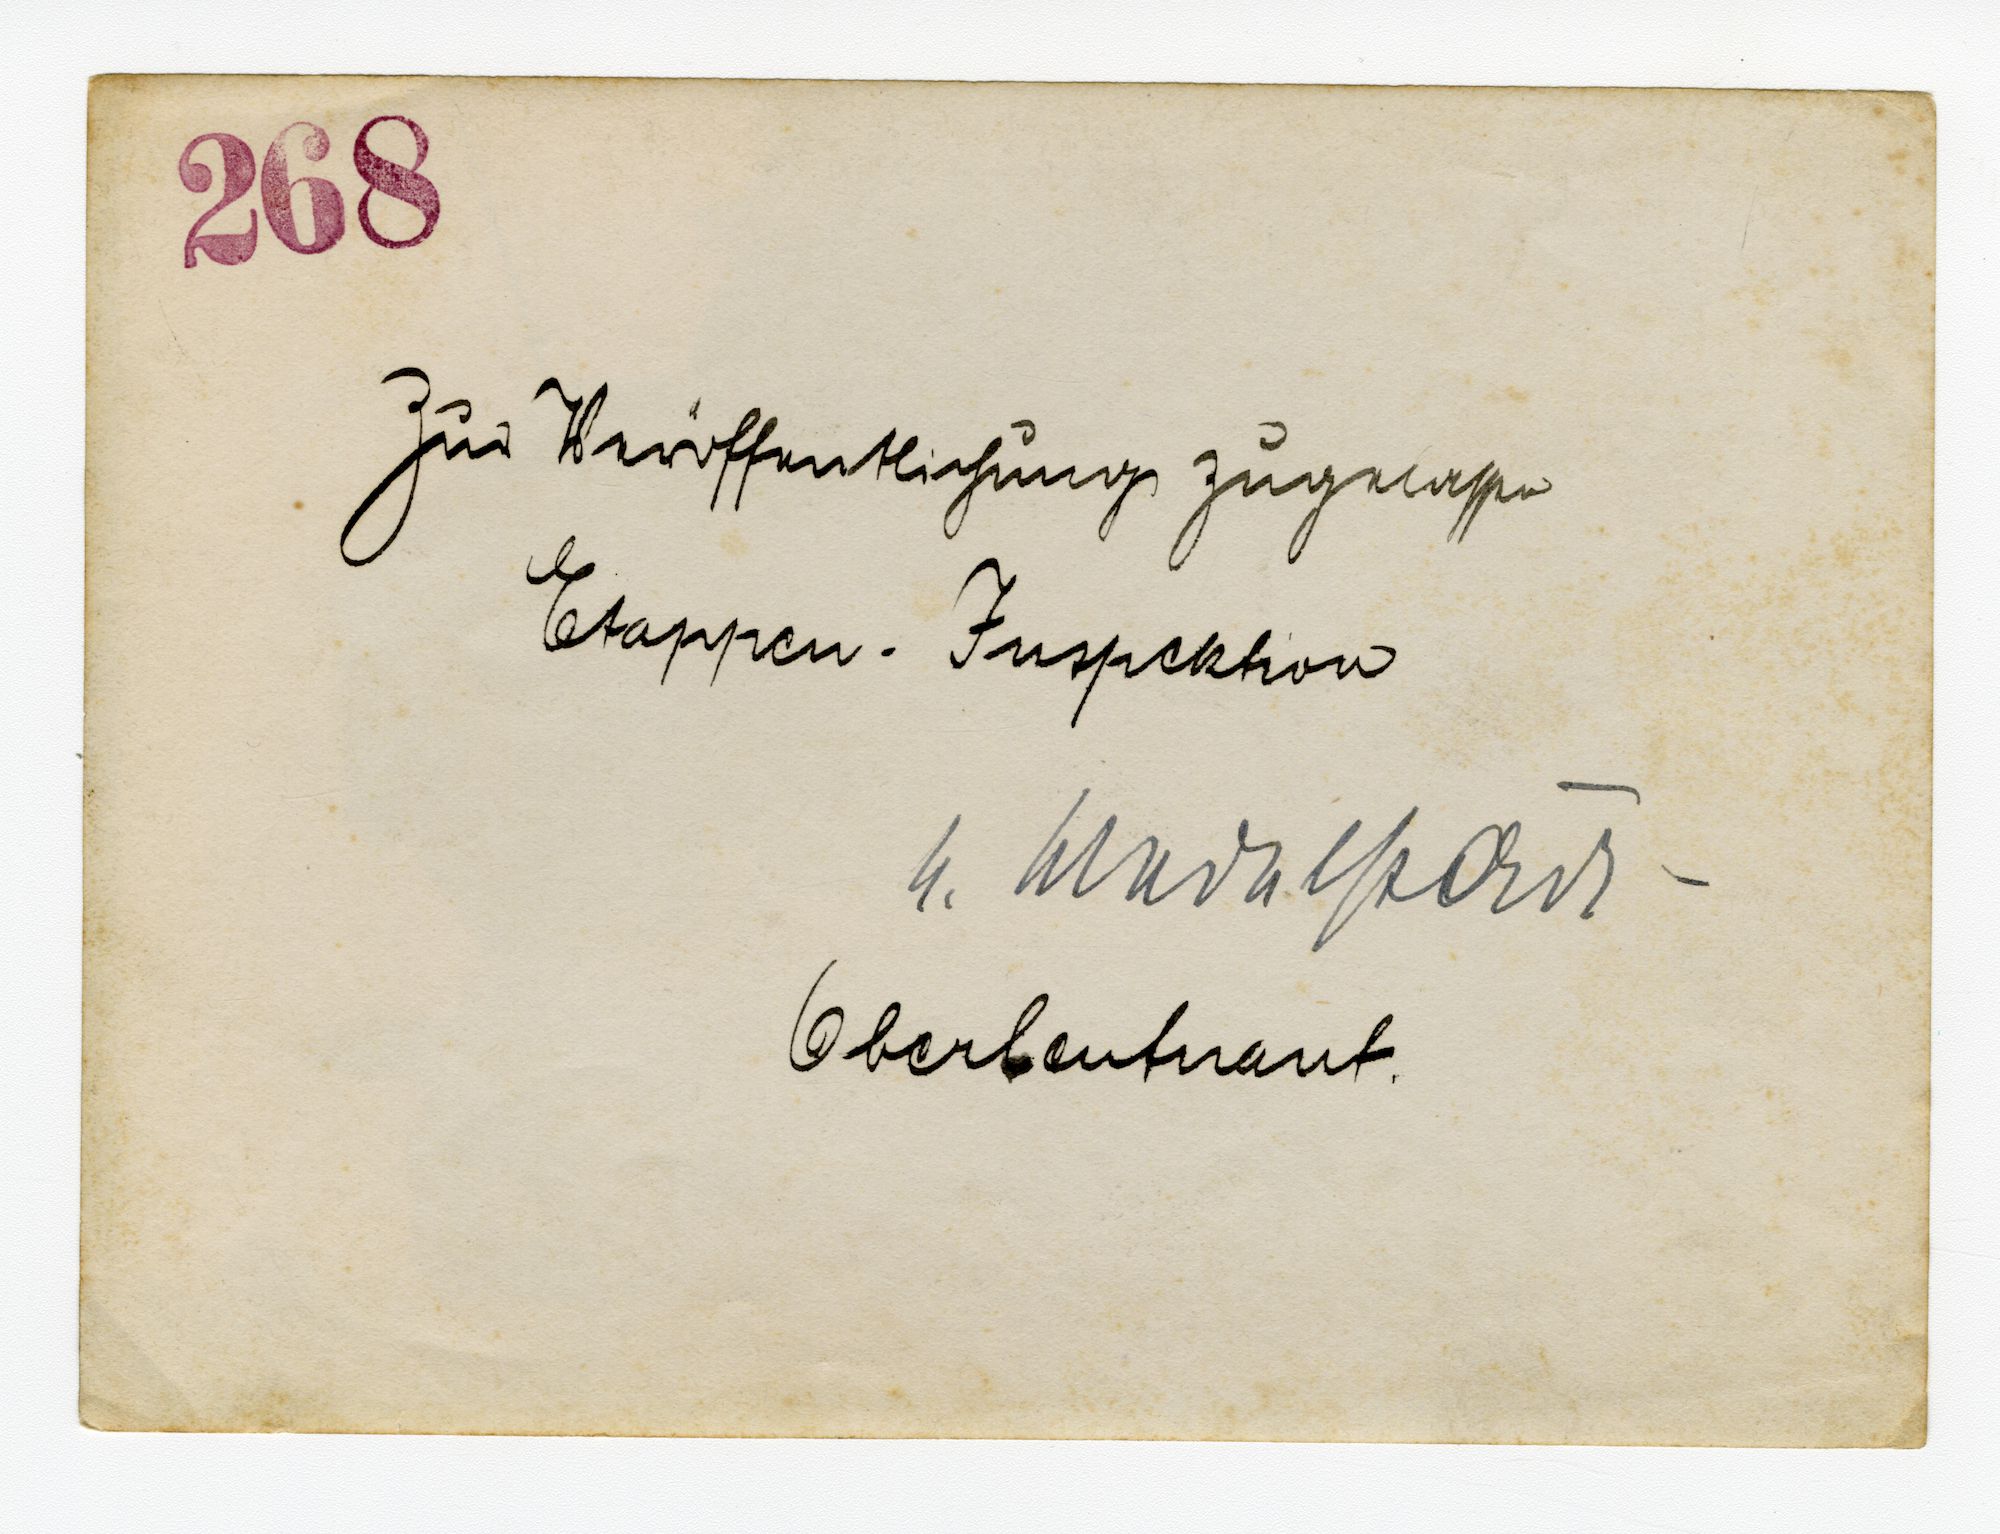 268
Zur Veröffentlichung zugelassen
Etappen-Inspektion
v.
Oberleutnant.